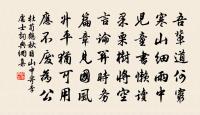 吾輩道何窮
寒山細雨中
兒童書懶讀
果栗樹將空
言論關時務
篇章見國風
昇平猶可用
應不廢為公
杜荀鶴秋日山中寄李
處士詞典網集